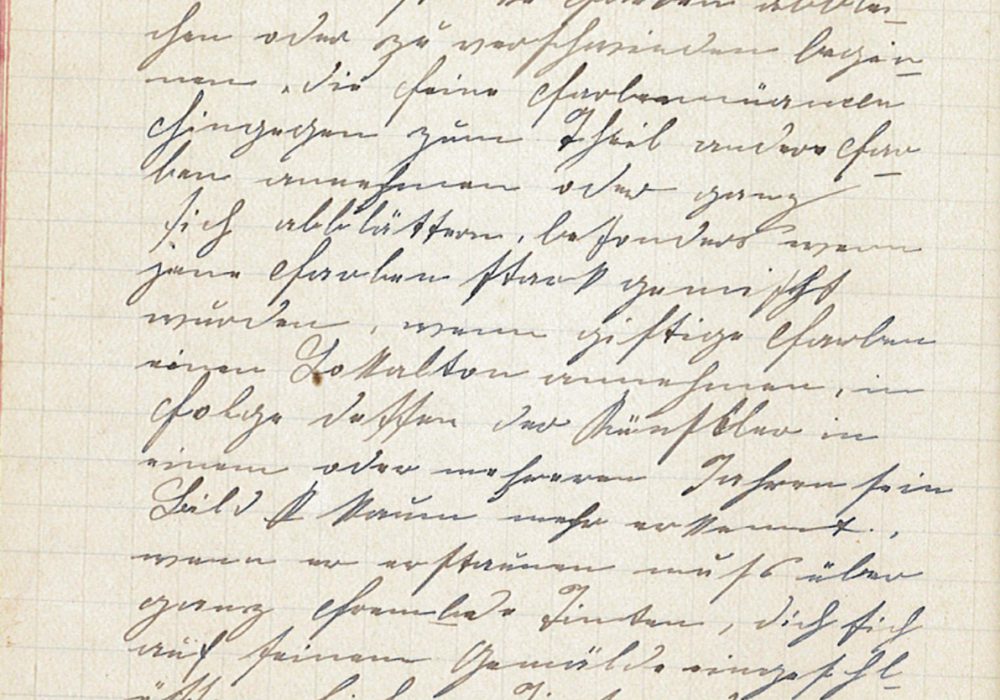 Farben abblei-
chen oder zu verschwinden begin-
nen, die feine Farbennüancen
hingegen zum Theil andere Far-
ben annehmen oder ganz
sich abblättern, besonders wenn
jene Farben stark gemischt
wurden, wenn giftige Farben
einen Lokalton annehmen, in
Folge dessen der Künstler in
einem oder mehreren Jahren sein
Bild kaum mehr erkennt.,
wenn er erstaunen muss über
ganz frembde Tinten, dich sich
auf seinem Gemälde eingeschl-